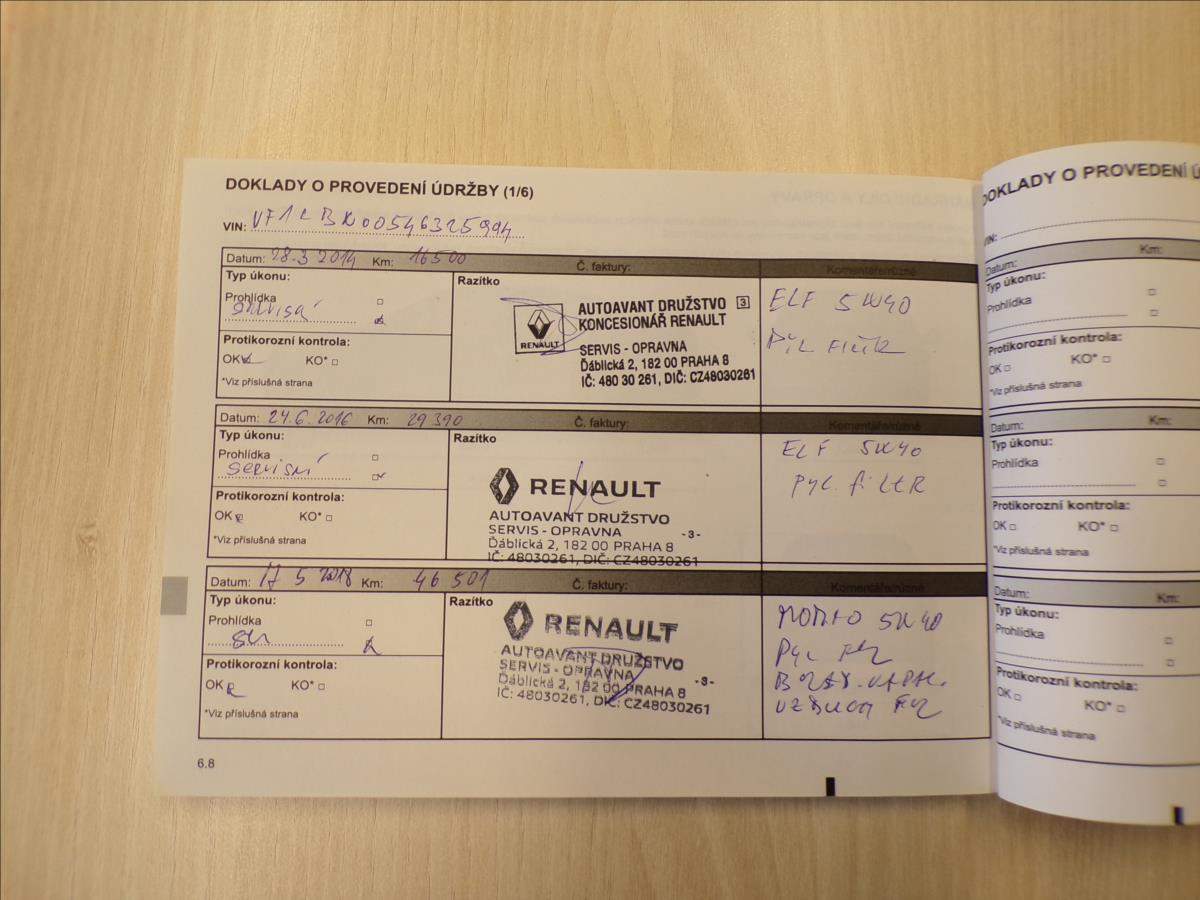 DOKLADY O PROVEDENÍ ÚDRŽBY (1/6)
VIN:
Datum: 28.3 2014 Km: 16500 Č. faktury: Komentáře/různé
Typ úkonu:
Prohlídka
Protikorozní kontrola:
OK KO* □
*Viz příslušná strana
Razítko
RENAULT
AUTOAVANT DRUŽSTVO 3
KONCESIONÁŘ RENAULT
SERVIS - OPRAVNA
Ďáblická 2, 182 00 PRAHA 8
IČ: 480 30 261, DIČ: CZ48030261
ELF 5W40
Datum: 24.6.2016 Km: 29 390 Č. faktury: Komentáře/různé
Typ úkonu:
Prohlídka
servisní
Protikorozní kontrola:
OK KO* □
*Viz příslušná strana
Razítko
RENAULT
AUTOAVANT DRUŽSTVO
SERVIS - OPRAVNA -3-
Ďáblická 2, 182 00 PRAHA 8
IČ: 48030261, DIČ: CZ48030261
ELF 5W40
Pyl. filtR
Datum: 17 5 2018 Km: 46 501 Č. faktury: Komentáře/různé
Typ úkonu:
Prohlídka
Protikorozní kontrola:
OK KO* □
*Viz příslušná strana
Razítko
RENAULT
AUTOAVANT DRUŽSTVO
SERVIS - OPRAVNA -3-
Ďáblická 2, 182 00 PRAHA 8
IČ: 48030261, DIČ: CZ48030261
5W40
Pyl
6.8
DOKLADY O PROVEDENÍ Ú
VIN:
Datum: Km:
Typ úkonu:
Prohlídka
Protikorozní kontrola:
OK □ KO* □
*Viz příslušná strana
Datum: Km:
Typ úkonu:
Prohlídka
Protikorozní kontrola:
OK □ KO* □
*Viz příslušná strana
Datum: Km:
Typ úkonu:
Prohlídka
Protikorozní kontrola:
OK □ KO* □
*Viz příslušná strana